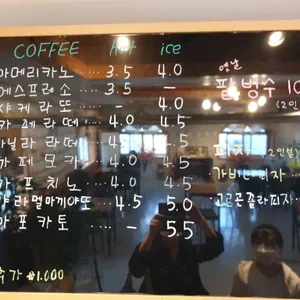 COFFEE Hot ice
아메리카노 .... 3.5 4.0
에스프레소 ... 3.5 -
샤케라또 ..... - 4.0
카페라떼 .. 4.0 4.5
바닐라 라떼 ... 4.5 -
카페모카 ... 4.0 4.5
카푸치노 .... 4.0 4.5
캬라멜마끼아또 .. 4.5 5.0
아포카토 ... - 5.5
추가 ₩1,000
옛날
팥빙수 10
(2인
피자
고르곤졸라피자